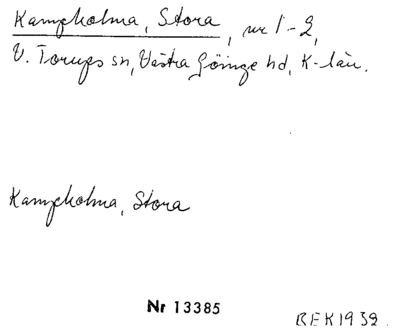 Kampholma, Stora, nr 1-2,
V. Torups sn, Västra Göinge hd, K-län.
Kampholma, Stora
Nr 13385
BEK1932.